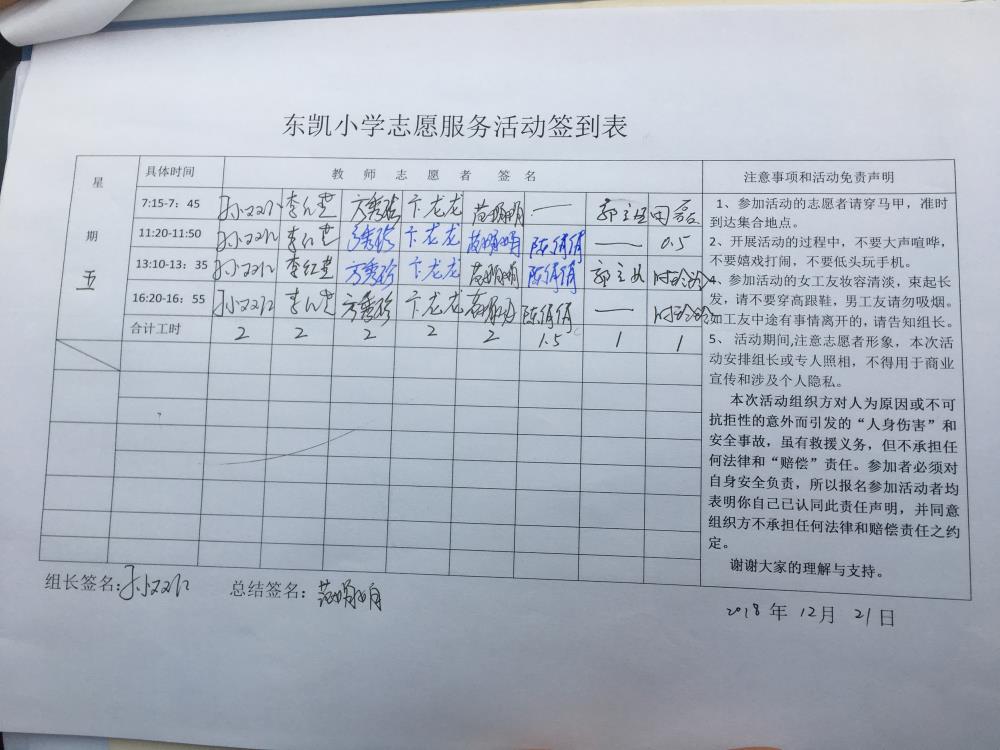 东凯小学志愿服务活动签到表
星期五
具体时间 教师志愿者签名 注意事项和活动免责声明
7:15-7：45 李红芝 方秀珍 卞龙龙 —
11:20-11:50 方秀珍 卞龙龙 陈倩倩 — 0.5
13:10-13：35 李红芝 方秀珍 卞龙龙 陈倩倩
16:20-16：55 方秀珍 卞龙龙 陈倩倩 —
合计工时 2 2 2 2 2 1.5 1 1
1、参加活动的志愿者请穿马甲，准时
到达集合地点。
2、开展活动的过程中，不要大声喧哗，
不要嬉戏打闹，不要低头玩手机。
4、参加活动的女工友妆容清淡，束起长
发，请不要穿高跟鞋，男工友请勿吸烟。
如工友中途有事情离开的，请告知组长。
5、 活动期间,注意志愿者形象，本次活
动安排组长或专人照相，不得用于商业
宣传和涉及个人隐私。
本次活动组织方对人为原因或不可
抗拒性的意外而引发的“人身伤害”和
安全事故，虽有救援义务，但不承担任
何法律和“赔偿”责任。参加者必须对
自身安全负责，所以报名参加活动者均
表明你自己已认同此责任声明，并同意
组织方不承担任何法律和赔偿责任之约
定。
谢谢大家的理解与支持。
组长签名: 总结签名：
2018年12月21日